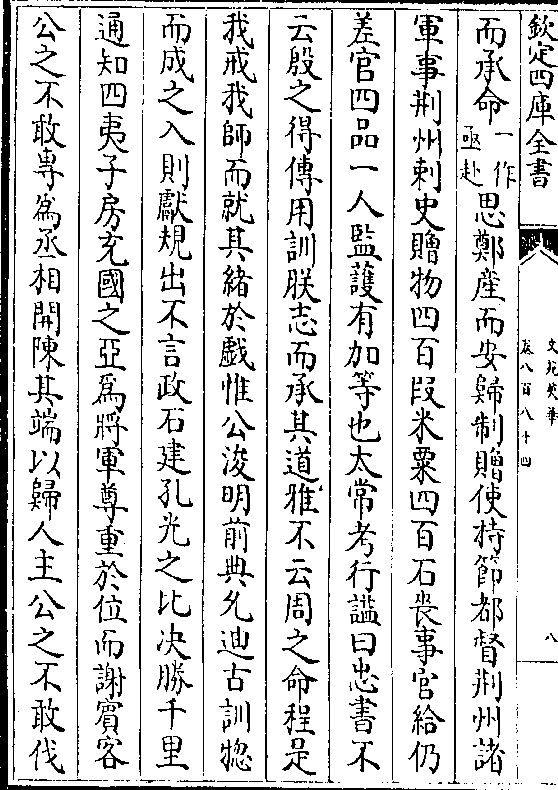 欽定四庫全書
文苑英華
卷八百八十四
八
而承命一作亟赴思鄭産而安歸制贈使持節都督荆州諸
軍事荆州刺史贈物四百段米粟四百石喪事官給仍
差官四品一人監護有加等也太常考行謚曰忠書不
云殷之得傅用訓朕志而承其道雅不云周之命程是
我戒我師而就其緒於戲惟公浚明前典允迪古訓惣
而成之入則獻規出不言政石建孔光之比決勝千里
通知四夷子房充國之亞為將軍尊重於位而謝賓客
公之不敢專為丞相開陳其端以歸人主公之不敢伐